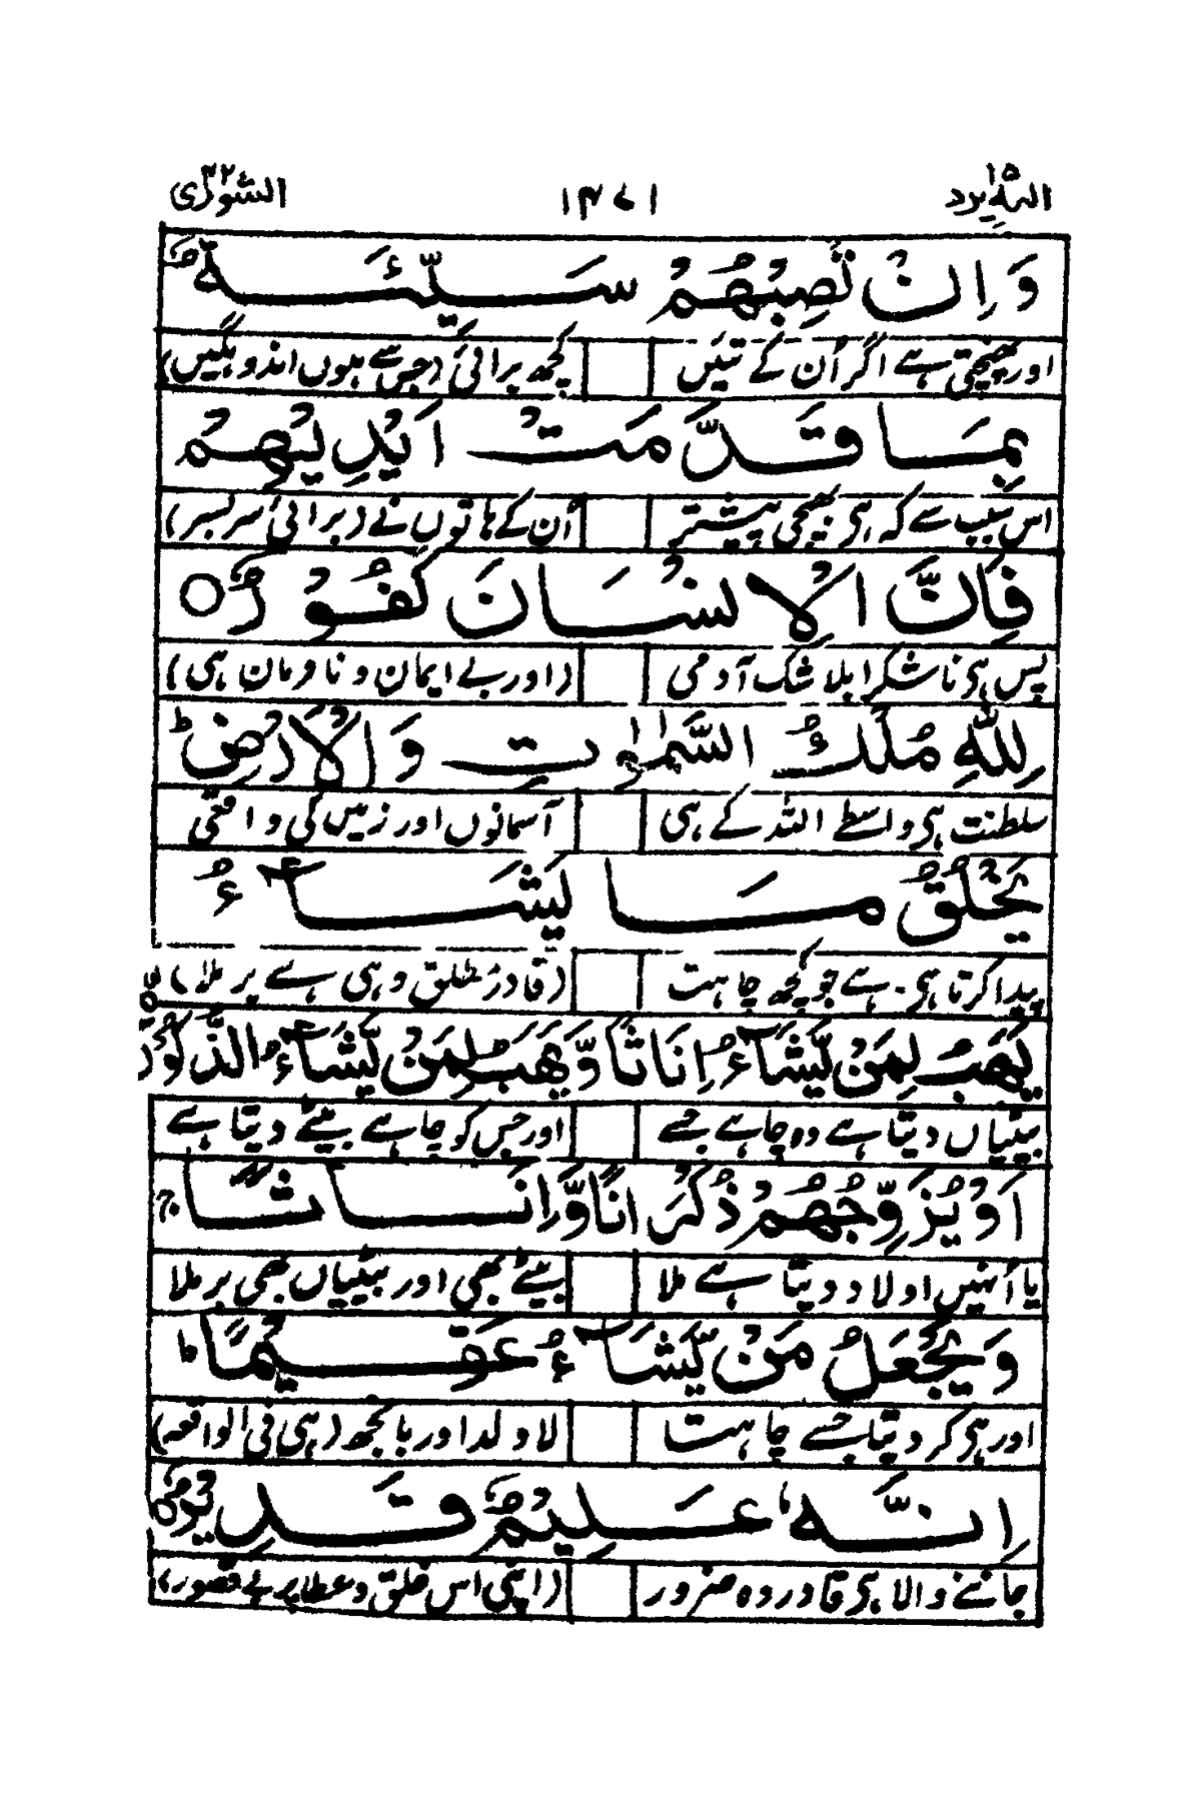 الیہ یرد ١٥ ١٤٧١ الشورٰی ٤٢
وَاِنْ تُصِبْهُمْ سَيِّئَةٌۢ
اور پہنچتی ہے اگر اُن کے تئیں کچھ برائی (جس سے ہوں اندوہگیں)
بِمَا قَدَّمَتْ اَيْدِيْهِمْ
اس سبب سے کہ ہی بھیجی پیشتر اُن کے ہاتوں نے (برائی سربسر)
فَاِنَّ الْاِنْسَانَ كَفُوْرٌ ○
پس ہی ناشکرا بلا شک آدمی (اور بے ایمان و نافرمان ہی)
لِلّٰهِ مُلْكُ السَّمٰوٰتِ وَالْاَرْضِ ؕ
سلطنت ہی واسطے اللہ کے ہی آسمانوں اور زمیں کی واقعی
يَخْلُقُ مَا يَشَآءُ
پیدا کرتا ہی ہے جو کچھ چاہت (قادر مطلق وہی ہے برملا)
يَهَبُ لِمَنْ يَّشَآءُ اِنَاثًا وَّيَهَبُ لِمَنْ يَّشَآءُ الذُّكُوْرَ ○
بیٹیاں دیتا ہے وہ چاہے جسے اور جس کو چاہے بیٹے دیتا ہے
اَوْ يُزَوِّجُهُمْ ذُكْرَانًا وَّاِنَاثًا ۚ
یا اُنہیں اولاد دیتا ہے ملا بیٹے بھی اور بیٹیاں بھی برملا
وَيَجْعَلُ مَنْ يَّشَآءُ عَقِيْمًا ؕ
اور ہی کر دیتا جسے چاہت لا ولد اور بانجھ (ہی فی الواقعہ)
اِنَّهٗ عَلِيْمٌ قَدِيْرٌ ○
جاننے والا ہی قادر وہ ضرور (اپنی اس خلق و عطا پر بے قصور)